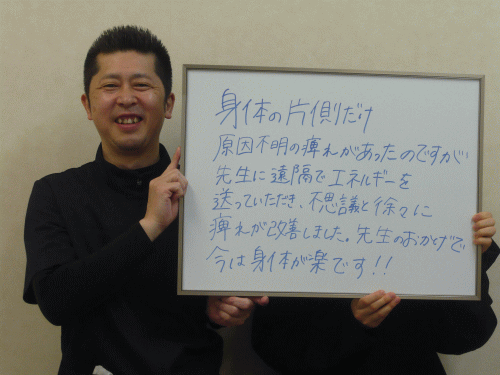 身体の片側だけ
原因不明の痺れがあったのですが
先生に遠隔でエネルギーを
送っていただき、不思議と徐々に
痺れが改善しました。先生のおかげで
今は身体が楽です!!